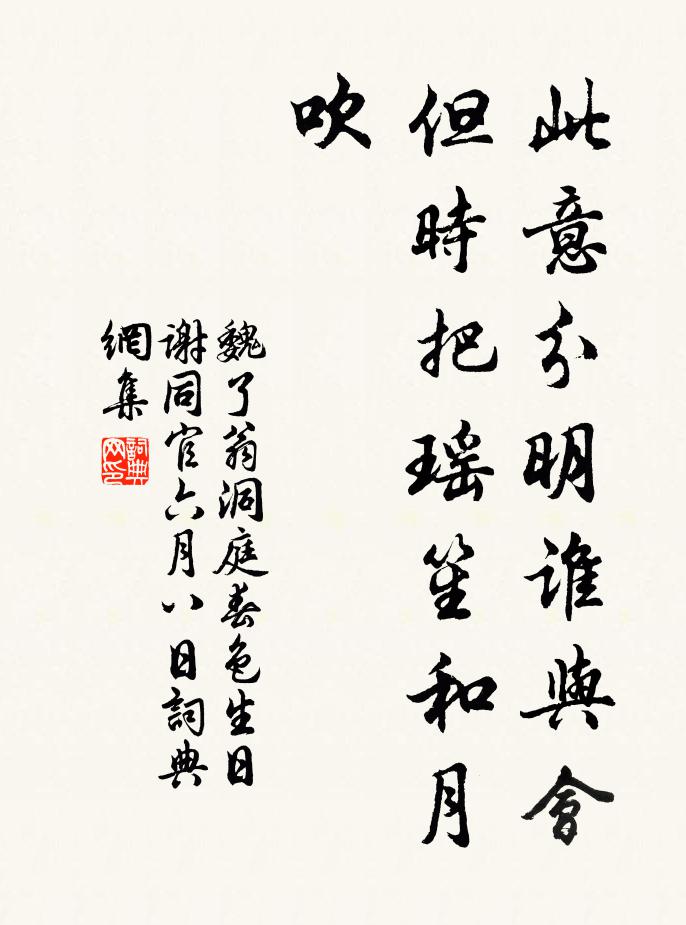 此意分明誰與會
但時把瑶笙和月
吹
魏了翁洞庭春色生日
謝同官六月八日詞典
網集
詞典
网印